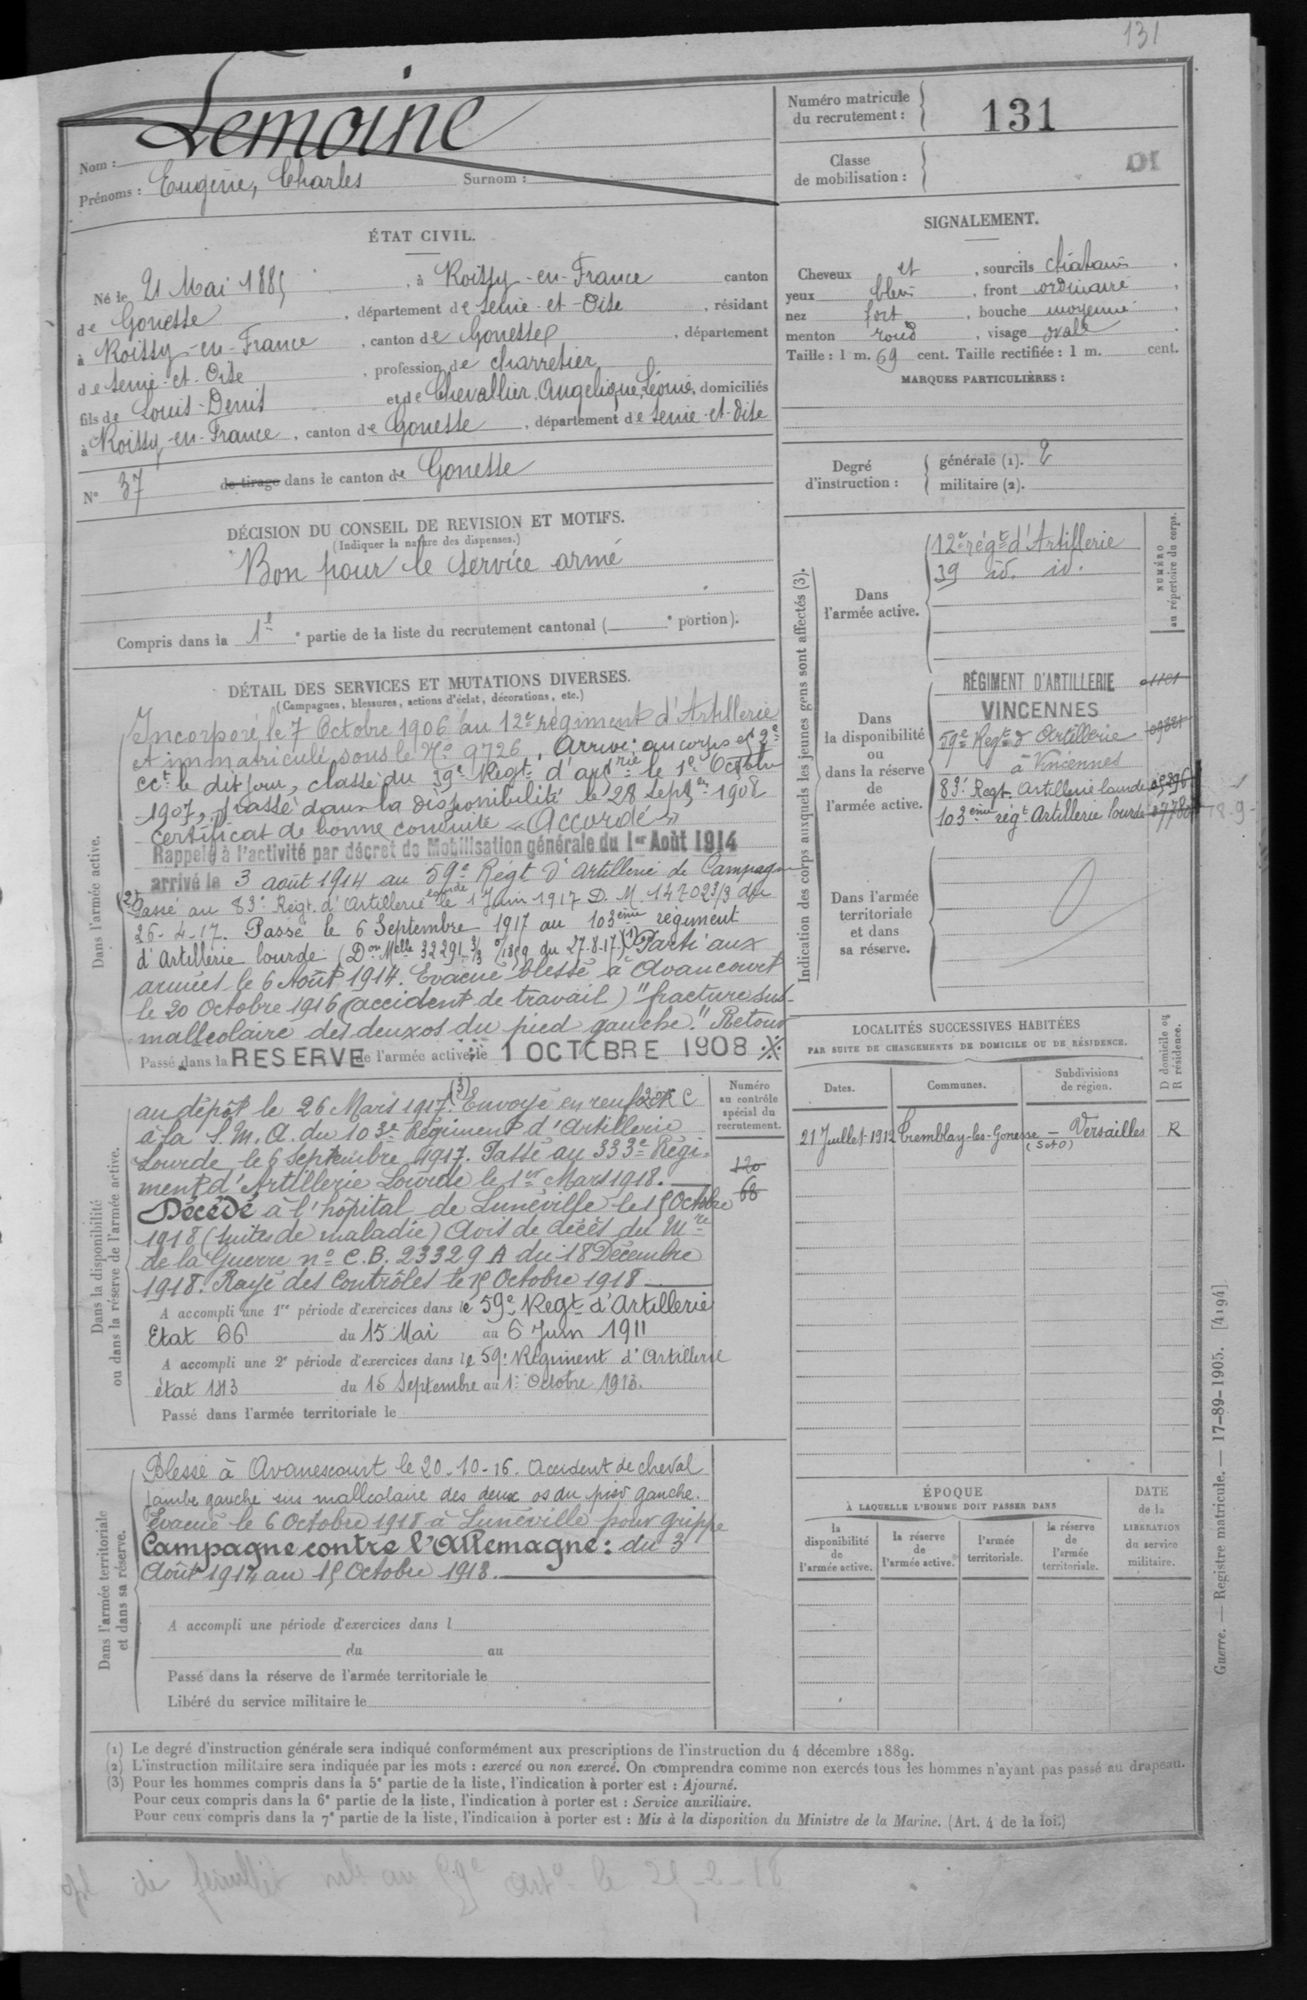 131
Nom : Lemoine
Prénoms : Eugène, Charles Surnom :
Numéro matricule du recrutement : 131
Classe de mobilisation : 01
ÉTAT CIVIL.
Né le 21 Mai 1885, à Roissy-en-France canton
de Gonesse, département de Seine-et-Oise, résidant
à Roissy-en-France, canton de Gonesse, département
de Seine-et-Oise, profession de charretier
fils de Louis-Denis et de Chevallier, Angelique, Léonie, domiciliés
à Roissy-en-France, canton de Gonesse, département de Seine-et-Oise
N° 37 de tirage dans le canton de Gonesse
DÉCISION DU CONSEIL DE REVISION ET MOTIFS.
(Indiquer la nature des dispenses.)
Bon pour le service armé
Compris dans la 1e partie de la liste du recrutement cantonal ( e portion).
DÉTAIL DES SERVICES ET MUTATIONS DIVERSES.
(Campagnes, blessures, actions d'éclat, décorations, etc.)
Dans l'armée active.
Incorporé le 7 Octobre 1906 au 12e régiment d'Artillerie
et immatriculé sous le No 9726, Arrivé au corps et 2e
cct le dit jour, classé du 39e Regt d'artrie le 1e Octobre
1907, passé dans la disponibilité le 28 Septbre 1908
Certificat de bonne conduite « Accordé »
Rappelé à l'activité par décret de Mobilisation générale du 1er Août 1914
arrivé le 3 août 1914 au 59e Régt d'Artillerie de Campagne
(2) Passé au 83e Régt. d'Artillerie lourde le 1 Juin 1917 D. M. 14702 3/3 du
26-4-17. Passé le 6 Septembre 1917 au 103ème régiment
d'Artillerie lourde (Don Melle 32291 3/3 du 27-8-17) (1) Parti aux
armées le 6 Août 1914. Evacué blessé à Avancourt
le 20 Octobre 1916 (accident de travail) "fracture sus-
malleolaire des deux os du pied gauche." Retour
Passé dans la RESERVE de l'armée active le 1 OCTOBRE 1908
Dans la disponibilité ou dans la réserve de l'armée active.
au dépôt le 26 Mars 1917. (3) Envoyé en renfort
à la S. M. A. du 103e Régiment d'Artillerie
Lourde le 6 Septembre 1917. Passé au 333e Régi-
ment d'Artillerie Lourde le 1er Mars 1918.
Décédé à l'hôpital de Lunéville le 15 Octobre
1918 (suites de maladie) Avis de décès du Mre
de la Guerre no C.B. 23329 A du 18 Décembre
1918. Rayé des Contrôles le 15 Octobre 1918
A accompli une 1re période d'exercices dans le 59e Regt d'Artillerie
Etat 66 du 15 Mai au 6 Juin 1911
A accompli une 2e période d'exercices dans le 59e Régiment d'Artillerie
état 143 du 15 Septembre au 1er Octobre 1913.
Passé dans l'armée territoriale le
Numéro au contrôle spécial du recrutement.
120
68
Dans l'armée territoriale et dans sa réserve.
Blessé à Avanescourt le 20-10-16. Accident de cheval
jambe gauche sus malleolaire des deux os du pied gauche.
Evacué le 6 Octobre 1918 à Lunéville pour grippe
Campagne contre l'Allemagne : du 3
Août 1914 au 15 Octobre 1918.
A accompli une période d'exercices dans l
du au
Passé dans la réserve de l'armée territoriale le
Libéré du service militaire le
SIGNALEMENT.
Cheveux et, sourcils chatains,
yeux bleus, front ordinaire,
nez fort, bouche moyenne,
menton rond, visage ovale.
Taille : 1 m. 69 cent. Taille rectifiée : 1 m. cent.
MARQUES PARTICULIÈRES :
Degré d'instruction : générale (1). 2
militaire (2).
Indication des corps auxquels les jeunes gens sont affectés (3).
NUMÉRO au répertoire du corps.
Dans l'armée active.
12e régt d'Artillerie
39 id. id.
Dans la disponibilité ou dans la réserve de l'armée active.
RÉGIMENT D'ARTILLERIE
VINCENNES
59e Regt d'Artillerie
à Vincennes
83e Regt. Artillerie lourde
103ème régt Artillerie lourde
Dans l'armée territoriale et dans sa réserve.
LOCALITÉS SUCCESSIVES HABITÉES
PAR SUITE DE CHANGEMENTS DE DOMICILE OU DE RÉSIDENCE.
D domicile ou R résidence.
Dates. Communes. Subdivisions de région.
21 Juillet 1912 Tremblay-les-Gonesse (S et O) Versailles R
ÉPOQUE
À LAQUELLE L'HOMME DOIT PASSER DANS
la disponibilité de l'armée active.
la réserve de l'armée active.
l'armée territoriale.
la réserve de l'armée territoriale.
DATE de la LIBÉRATION du service militaire.
Guerre. — Registre matricule. — 17-89-1905. [4194]
(1) Le degré d'instruction générale sera indiqué conformément aux prescriptions de l'instruction du 4 décembre 1889.
(2) L'instruction militaire sera indiquée par les mots : exercé ou non exercé. On comprendra comme non exercés tous les hommes n'ayant pas passé au drapeau.
(3) Pour les hommes compris dans la 5e partie de la liste, l'indication à porter est : Ajourné.
Pour ceux compris dans la 6e partie de la liste, l'indication à porter est : Service auxiliaire.
Pour ceux compris dans la 7e partie de la liste, l'indication à porter est : Mis à la disposition du Ministre de la Marine. (Art. 4 de la loi.)
de feuillet au 59e arte le 25-2-18